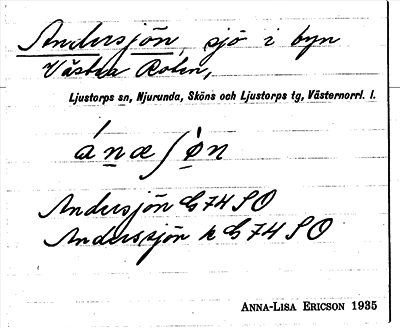 Andersjön, sjö i byn
Västra Roten,
Ljustorps sn, Njurunda, Sköns och Ljustorps tg, Västernorrl. l.
ánæʃǿn
Andersjön G 74 SO
Anderssjön k G 74 SO
ANNA-LISA ERICSON 1935